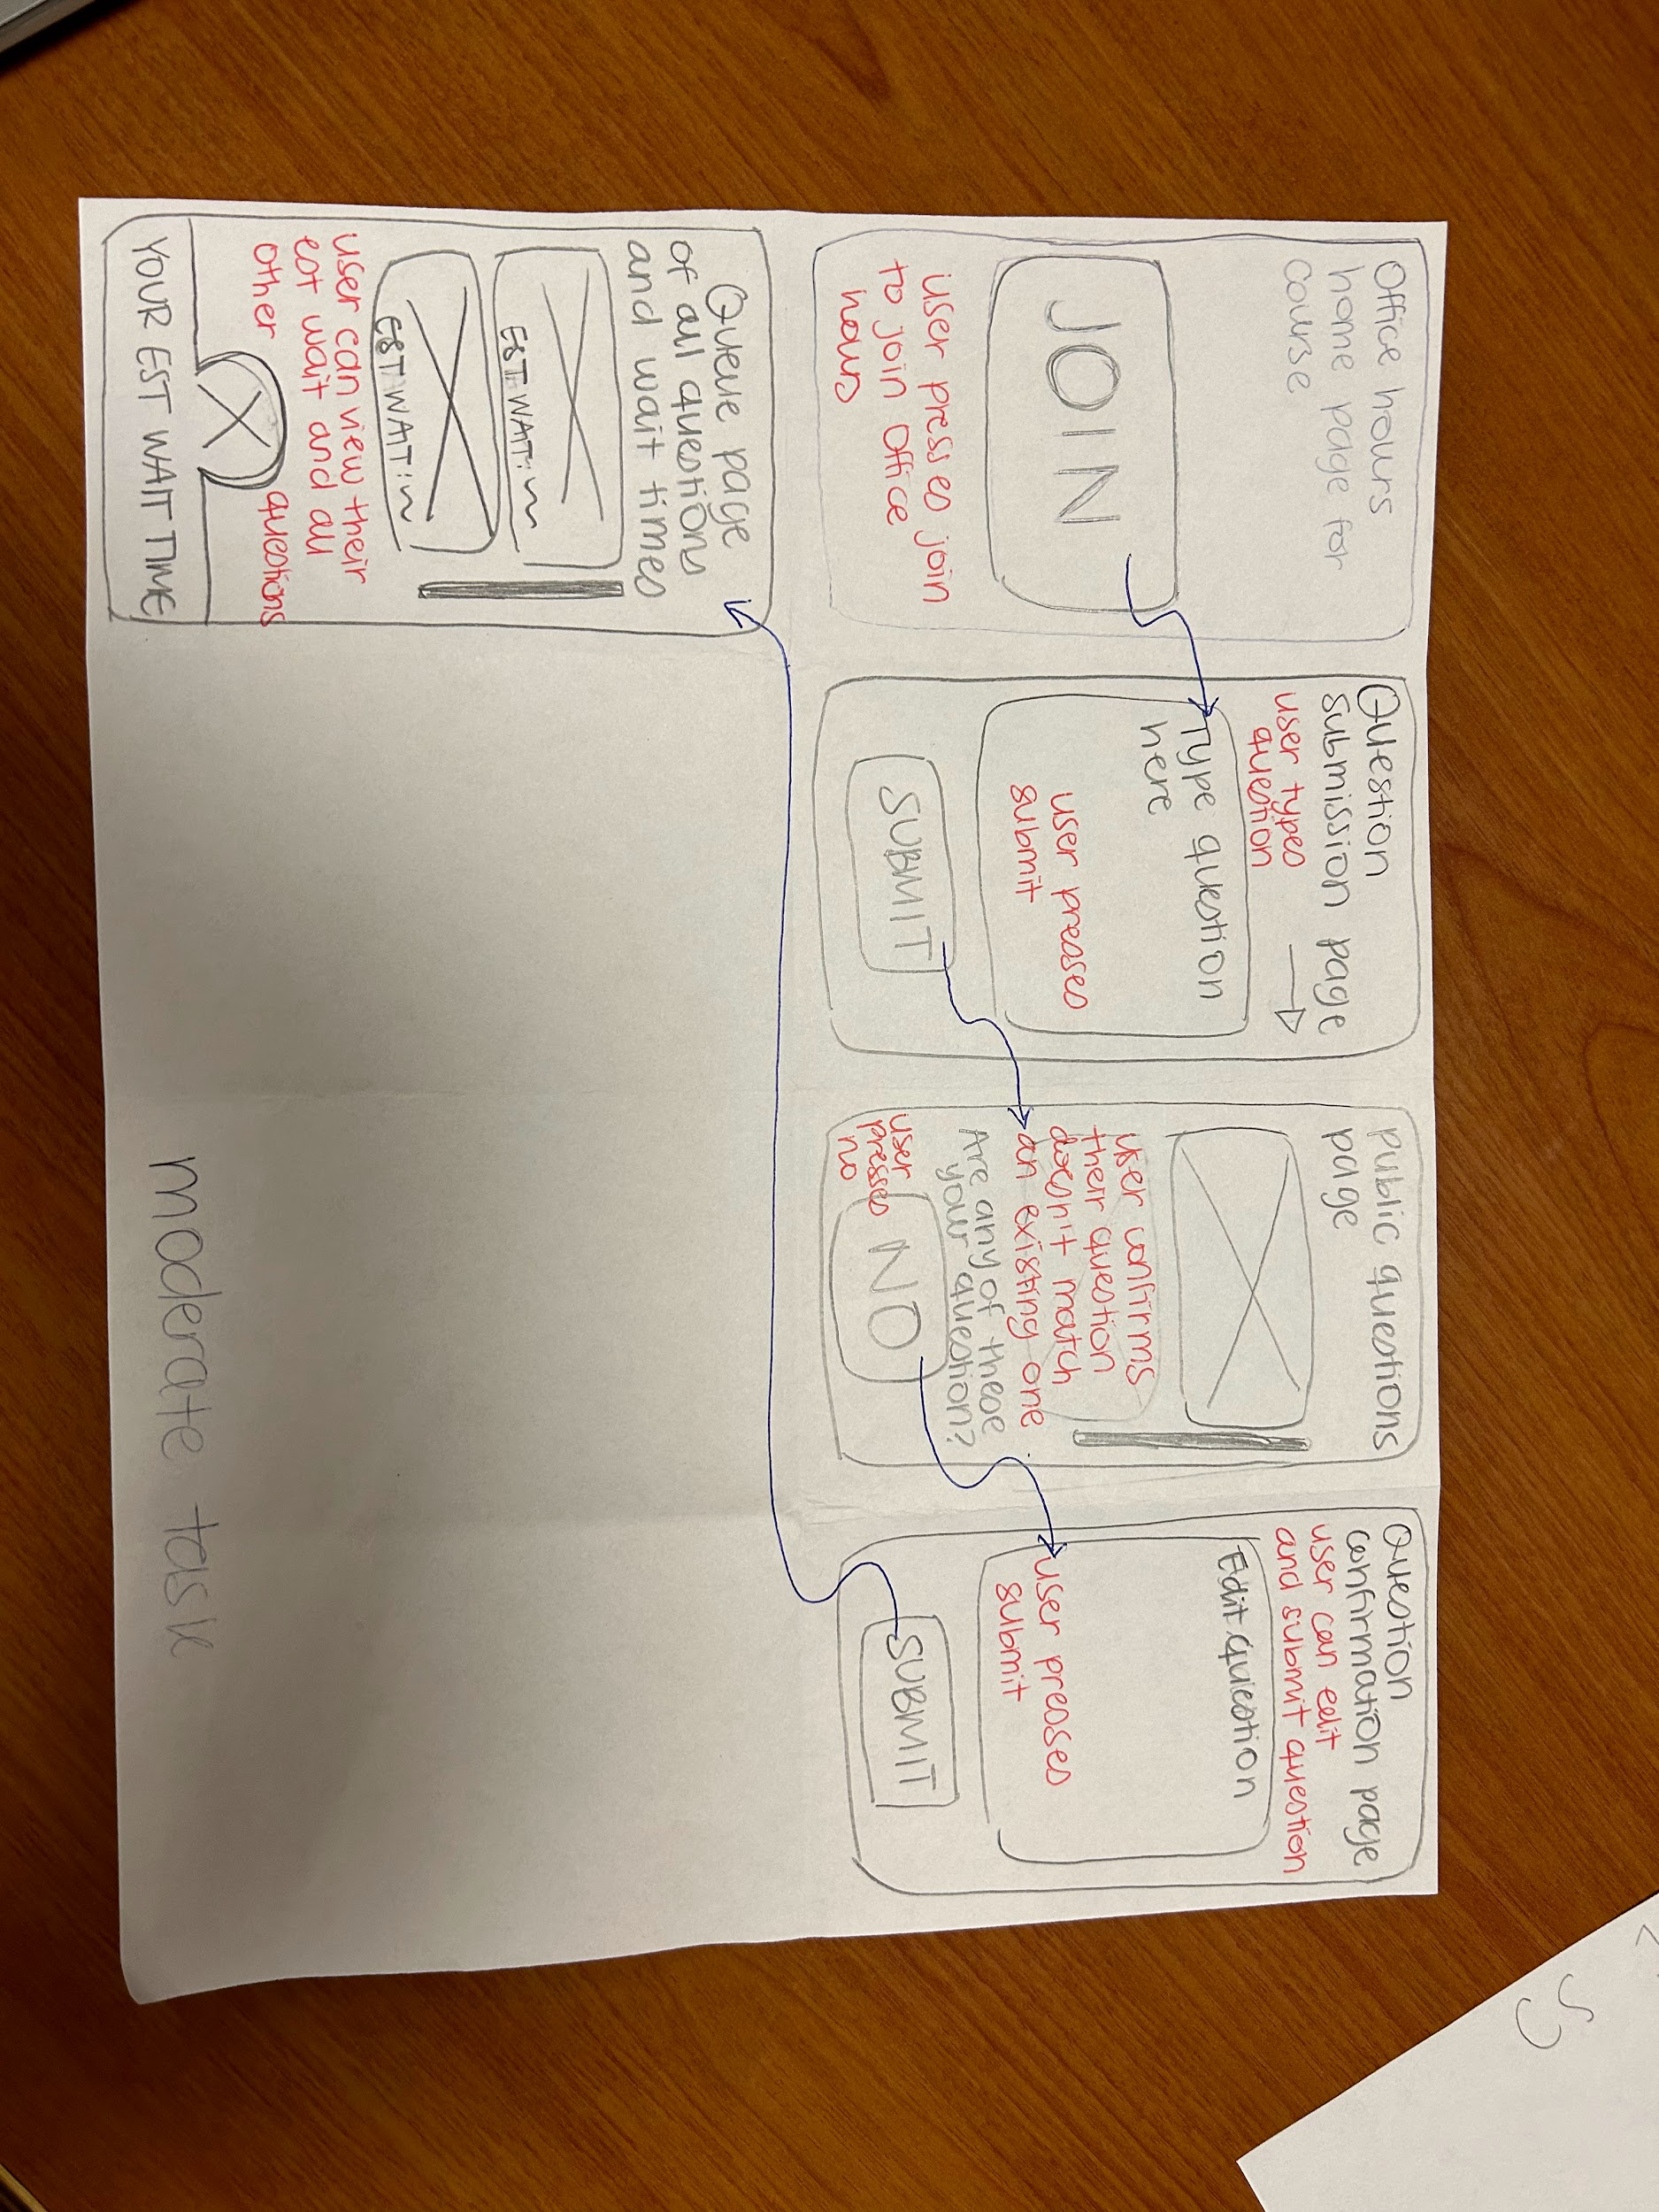 Office hours
home page for
course
JOIN
user presses join
to join Office
hours
Question
submission page
user types
question
Type question
here
user presses
submit
SUBMIT
Public questions
page
user confirms
their question
doesn't match
an existing one
Are any of these
your question?
user
presses
no
NO
Question
confirmation page
user can edit
and submit question
Edit question
user presses
submit
SUBMIT
Queue page
of all questions
and wait times
EST WAIT:
EST WAIT:
user can view their
est wait and all
other questions
YOUR EST WAIT TIME
moderate task